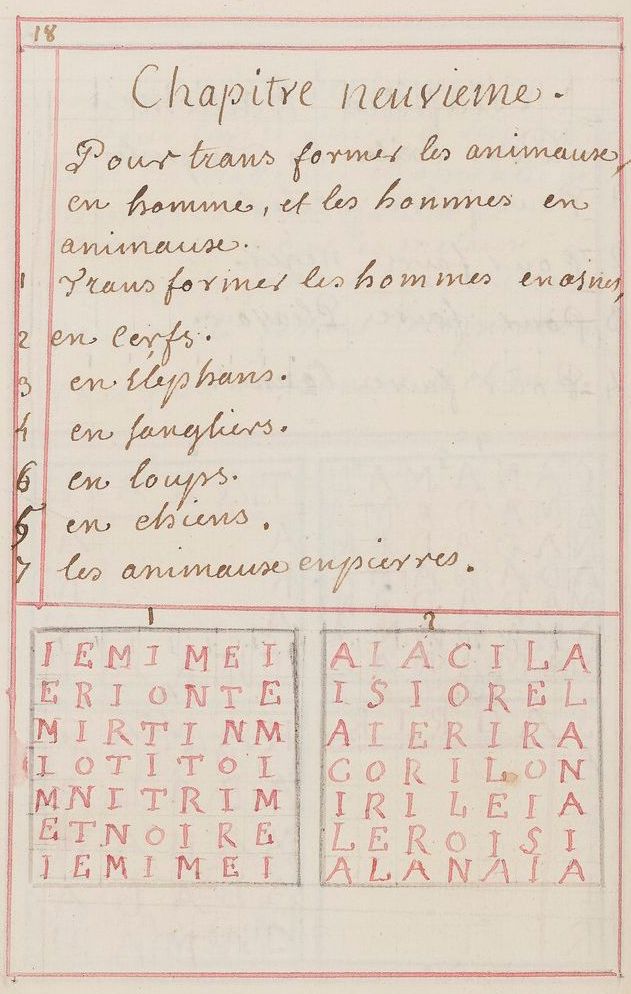 18
Chapitre neuvieme.
Pour trans former les animause
en homme, et les hommes en
animause.
1 Trans former les hommes en asnes,
2 en Cerfs.
3 en Elephans.
4 en Sangliers.
6 en loups.
5 en chiens.
7 les animause en pierres.
1 2
I E M I M E I
E R I O N T E
M I R T I N M
I O T I T O I
M N I T R I M
E T N O I R E
I E M I M E I
A I A C I L A
I S I O R E L
A I E R I R A
C O R I L O N
I R I L E I A
L E R O I S I
A L A N A I A